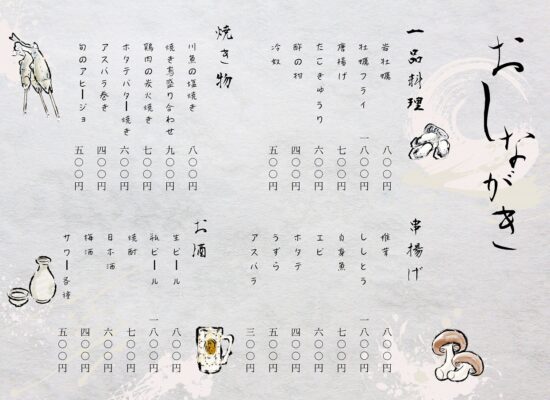 おしながき
一品料理
岩牡蠣 八〇〇円
牡蠣フライ 一八〇〇円
唐揚げ 七〇〇円
たこきゅうり 六〇〇円
酢の村 四〇〇円
冷奴 五〇〇円
焼き物
川魚の塩焼き 八〇〇円
焼き鳥盛り合わせ 九〇〇円
鶏肉の炭火焼き 七〇〇円
ホタテバター焼き 六〇〇円
アスパラ巻き 四〇〇円
旬のアヒージョ 五〇〇円
串揚げ
椎茸 八〇〇円
ししとう 一八〇〇円
白身魚 七〇〇円
エビ 六〇〇円
ホタテ 四〇〇円
うずら 五〇〇円
アスパラ 三〇〇円
お酒
生ビール 八〇〇円
瓶ビール 一八〇〇円
焼酎 七〇〇円
日本酒 六〇〇円
梅酒 四〇〇円
サワー各種 五〇〇円